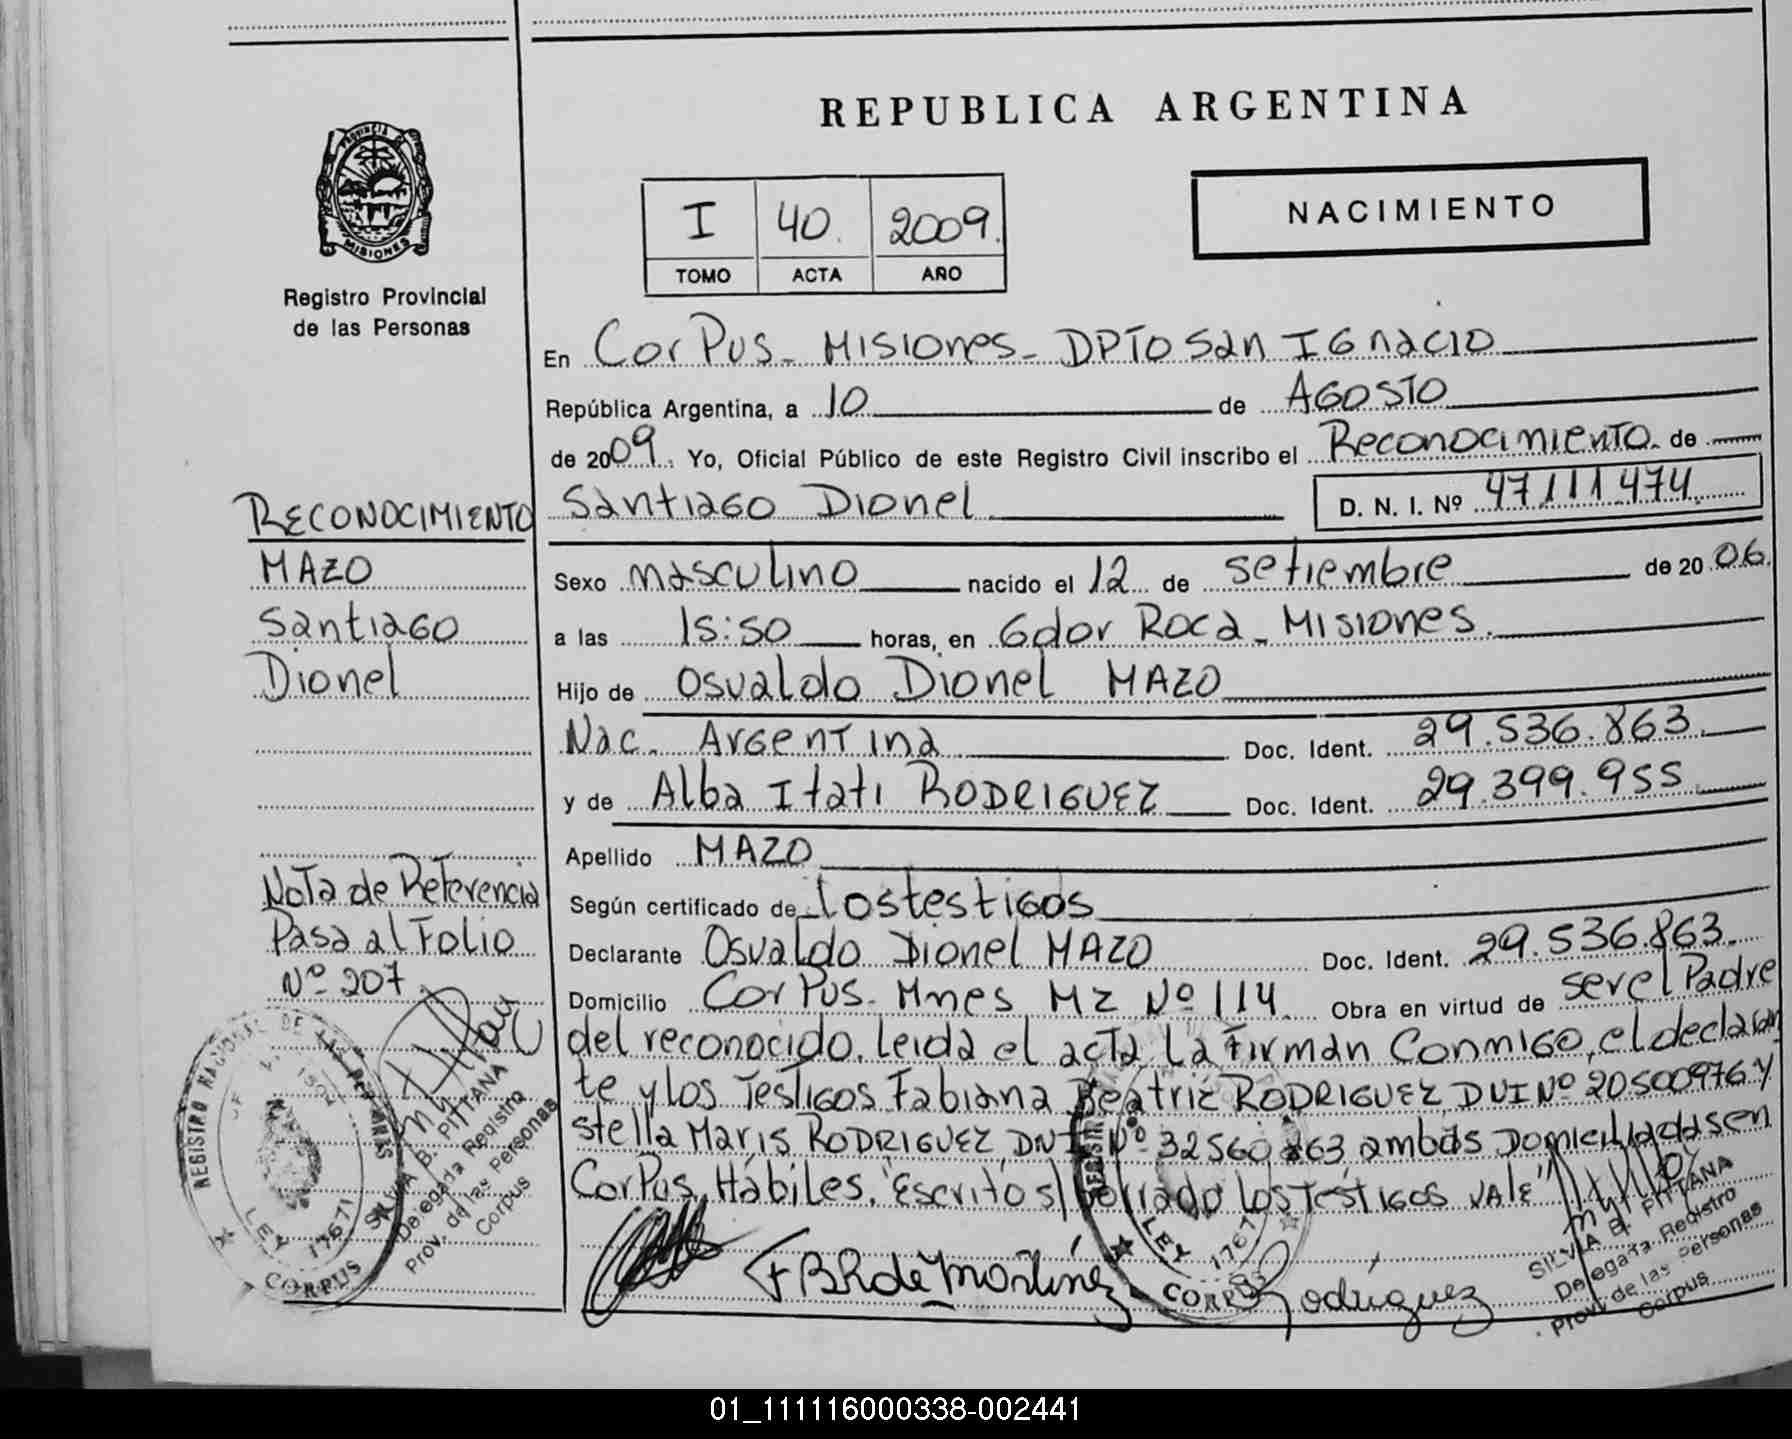 REPUBLICA ARGENTINA
PROVINCIA
MISIONES
Registro Provincial
de las Personas
I 40. 2009.
TOMO ACTA AÑO
NACIMIENTO
En Corpus - Misiones - DPTO San Ignacio
República Argentina, a 10 de AGOSTO
de 2009. Yo, Oficial Público de este Registro Civil inscribo el Reconocimiento de
Santiago Dionel D. N. I. Nº 47111474
Sexo masculino nacido el 12 de setiembre de 2006.
a las 15:50 horas, en Gdor Roca - Misiones.
Hijo de Osvaldo Dionel MAZO
Nac. Argentina Doc. Ident. 29.536.863.
y de Alba Itati RODRIGUEZ Doc. Ident. 29.399.955
Apellido MAZO
Según certificado de los testigos
Declarante Osvaldo Dionel MAZO Doc. Ident. 29.536.863.
Domicilio Corpus - Mnes Mz Nº 114. Obra en virtud de ser el Padre
del reconocido. Leida el acta La Firman Conmigo, el declaran
te y los Testigos Fabiana Beatriz RODRIGUEZ DNI Nº 20500976 y
stella Maris RODRIGUEZ, DNI Nº 32560863 ambas Domiciliadas en
Corpus, Hábiles. "Escrito s/ borrado los Testigos VALE"
FBR de Martínez
Rodriguez
RECONOCIMIENTO
MAZO
Santiago
Dionel
Nota de Referencia
Pasa al Folio
Nº 207
REGISTRO NACIONAL DE LAS PERSONAS
LEY 17671
CORPUS
SILVIA B. PITTANA
Delegada Registro
Prov. de las Personas
Corpus
LEY 17671
CORPUS
SILVIA B. PITTANA
Delegada Registro
Prov. de las Personas
Corpus
01_111116000338-002441